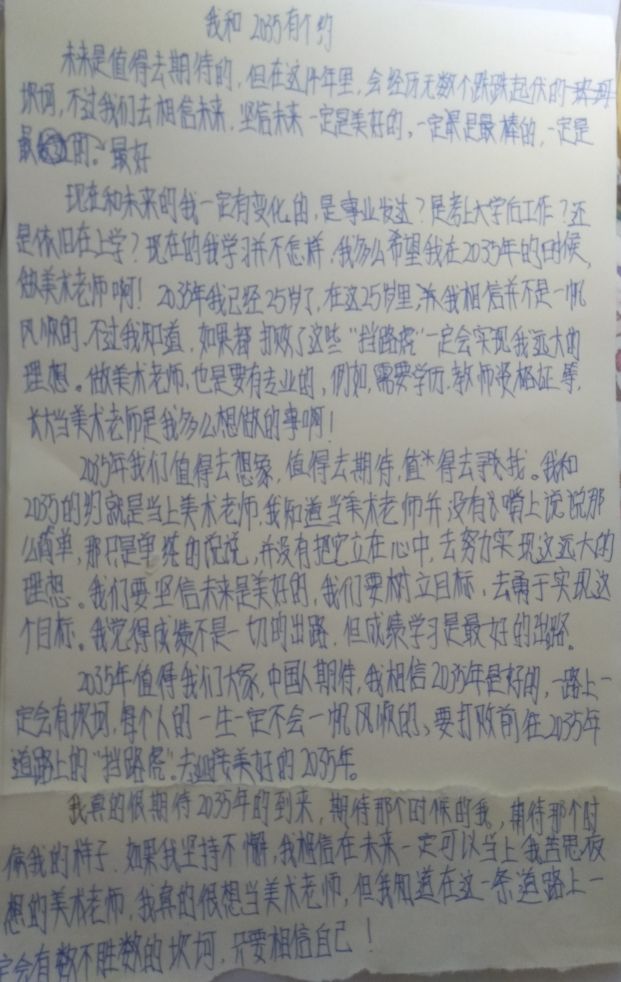 我和 2035有个约
未来是值得去期待的，但在这个年里，会经历无数个跌跌起伏的
坎坷，不过我们去相信未来，坚信未来一定是美好的。一定是最棒的，一定是
最的。最好
现在和未来的我一定有变化的，是事业发达？是考上大学后工作？还
是依旧在上学？现在的我学习并不怎样，我多么希望我在2035年的时候，
做美术老师啊！2035年我已经25岁了，在这25岁里，我相信并不是一帆
风顺的，不过我知道，如果都打败了这些“挡路虎”一定会实现我远大的
理想。做美术老师，也是要有专业的，例如，需要学历、教师资格证等，
当美术老师是我多么想做的事啊！
2035年我们值得去想象，值得去期待，值得去寻找。我和
2035的约就是当上美术老师，我知道当美术老师并没有嘴上说说那
么简单，那只是单纯的说说，并没有把它立在心中，去努力实现这远大的
理想。我们要坚信未来是美好的，我们要树立目标，去勇于实现这
个目标。我觉得成绩不是一切的出路，但成绩学习是最好的出路。
2035年值得我们大家，中国人期待，我相信2035年是好的，一路上一
定会有坎坷，每个人的一生一定不会一帆风顺的、要打败前往2035年
道路上的“挡路虎”。去迎接美好的2035年。
我真的很期待2035年的到来，期待那个时候的我，期待那个时
候我的样子，如果我坚持不懈，我相信在未来一定可以当上我苦思夜
想的美术老师，我真的很想当美术老师，但我知道在这一条道路上一
定会有数不胜数的坎坷，只要相信自己！